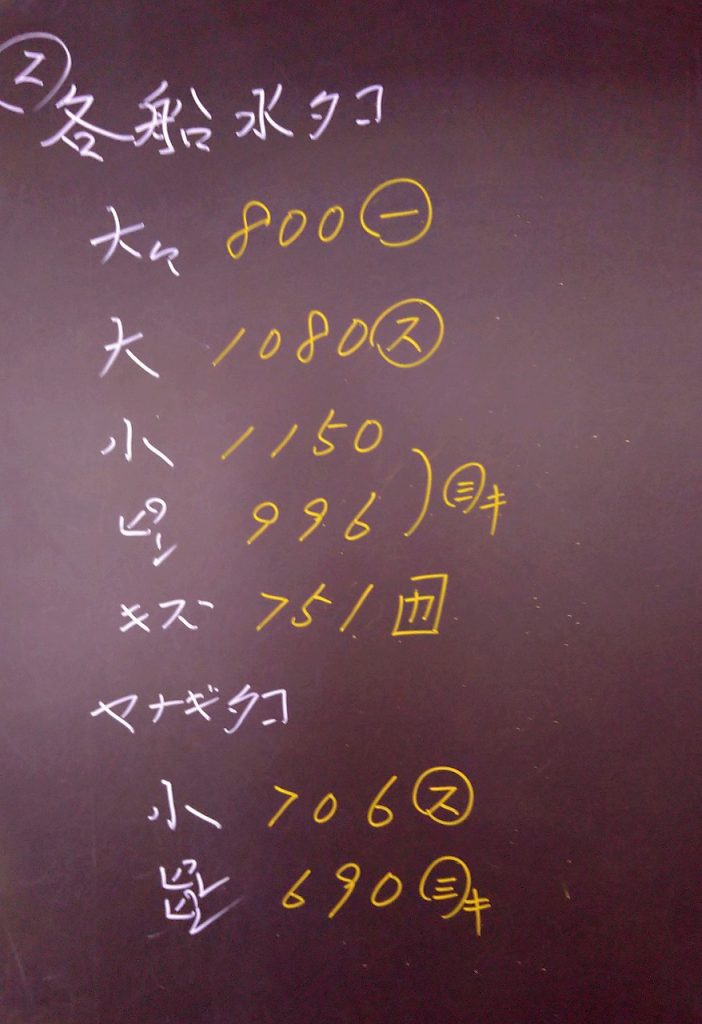 ② 各船水タコ
大々 800 ㊀
大 1080 ㋜
小 1150
ピン 996 ㊂キ
キズ 751 カ
ヤナギタコ
小 706 ㋜
ピンピン 690 ㊂キ